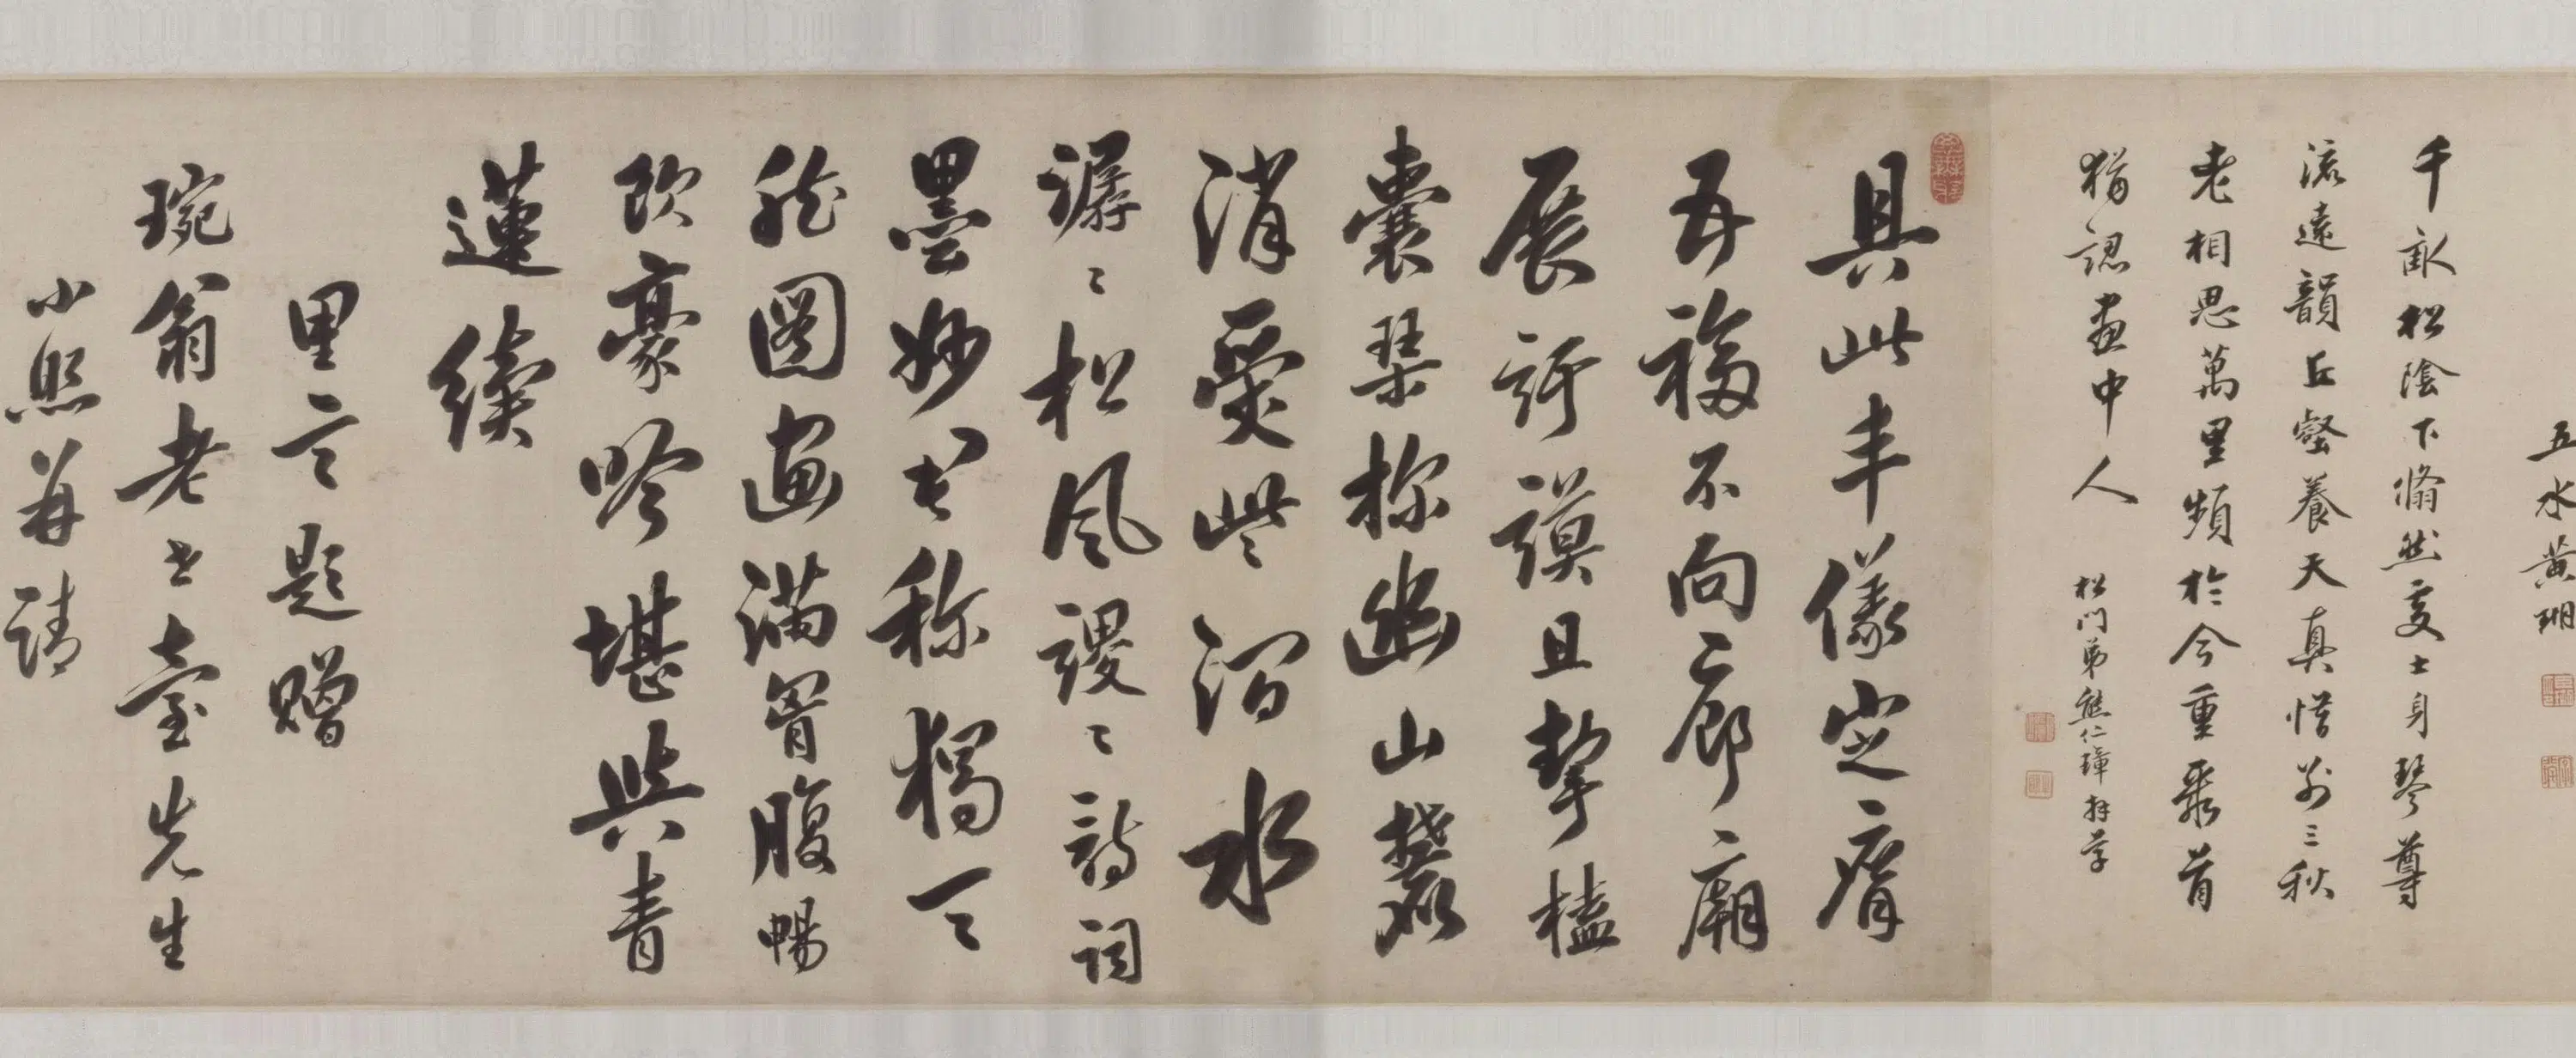 五水黃瑚
千畝松陰下翛然處士身琴尊
流遠韻丘壑養天真惜別三秋
老相思萬里頻於今重聚首
猶認畫中人 松門弟熊仁瑋拜草
具此丰儀定膺
五福不向廊廟
展訏謨且挈榼
囊琴探幽山麓
消受些
水
潺々松風謖々詩詞
墨妙書稱獨
圖畫滿胷腹暢
飲豪吟堪與青
蓮續
里言題贈
琬翁老士臺先生
小照并請